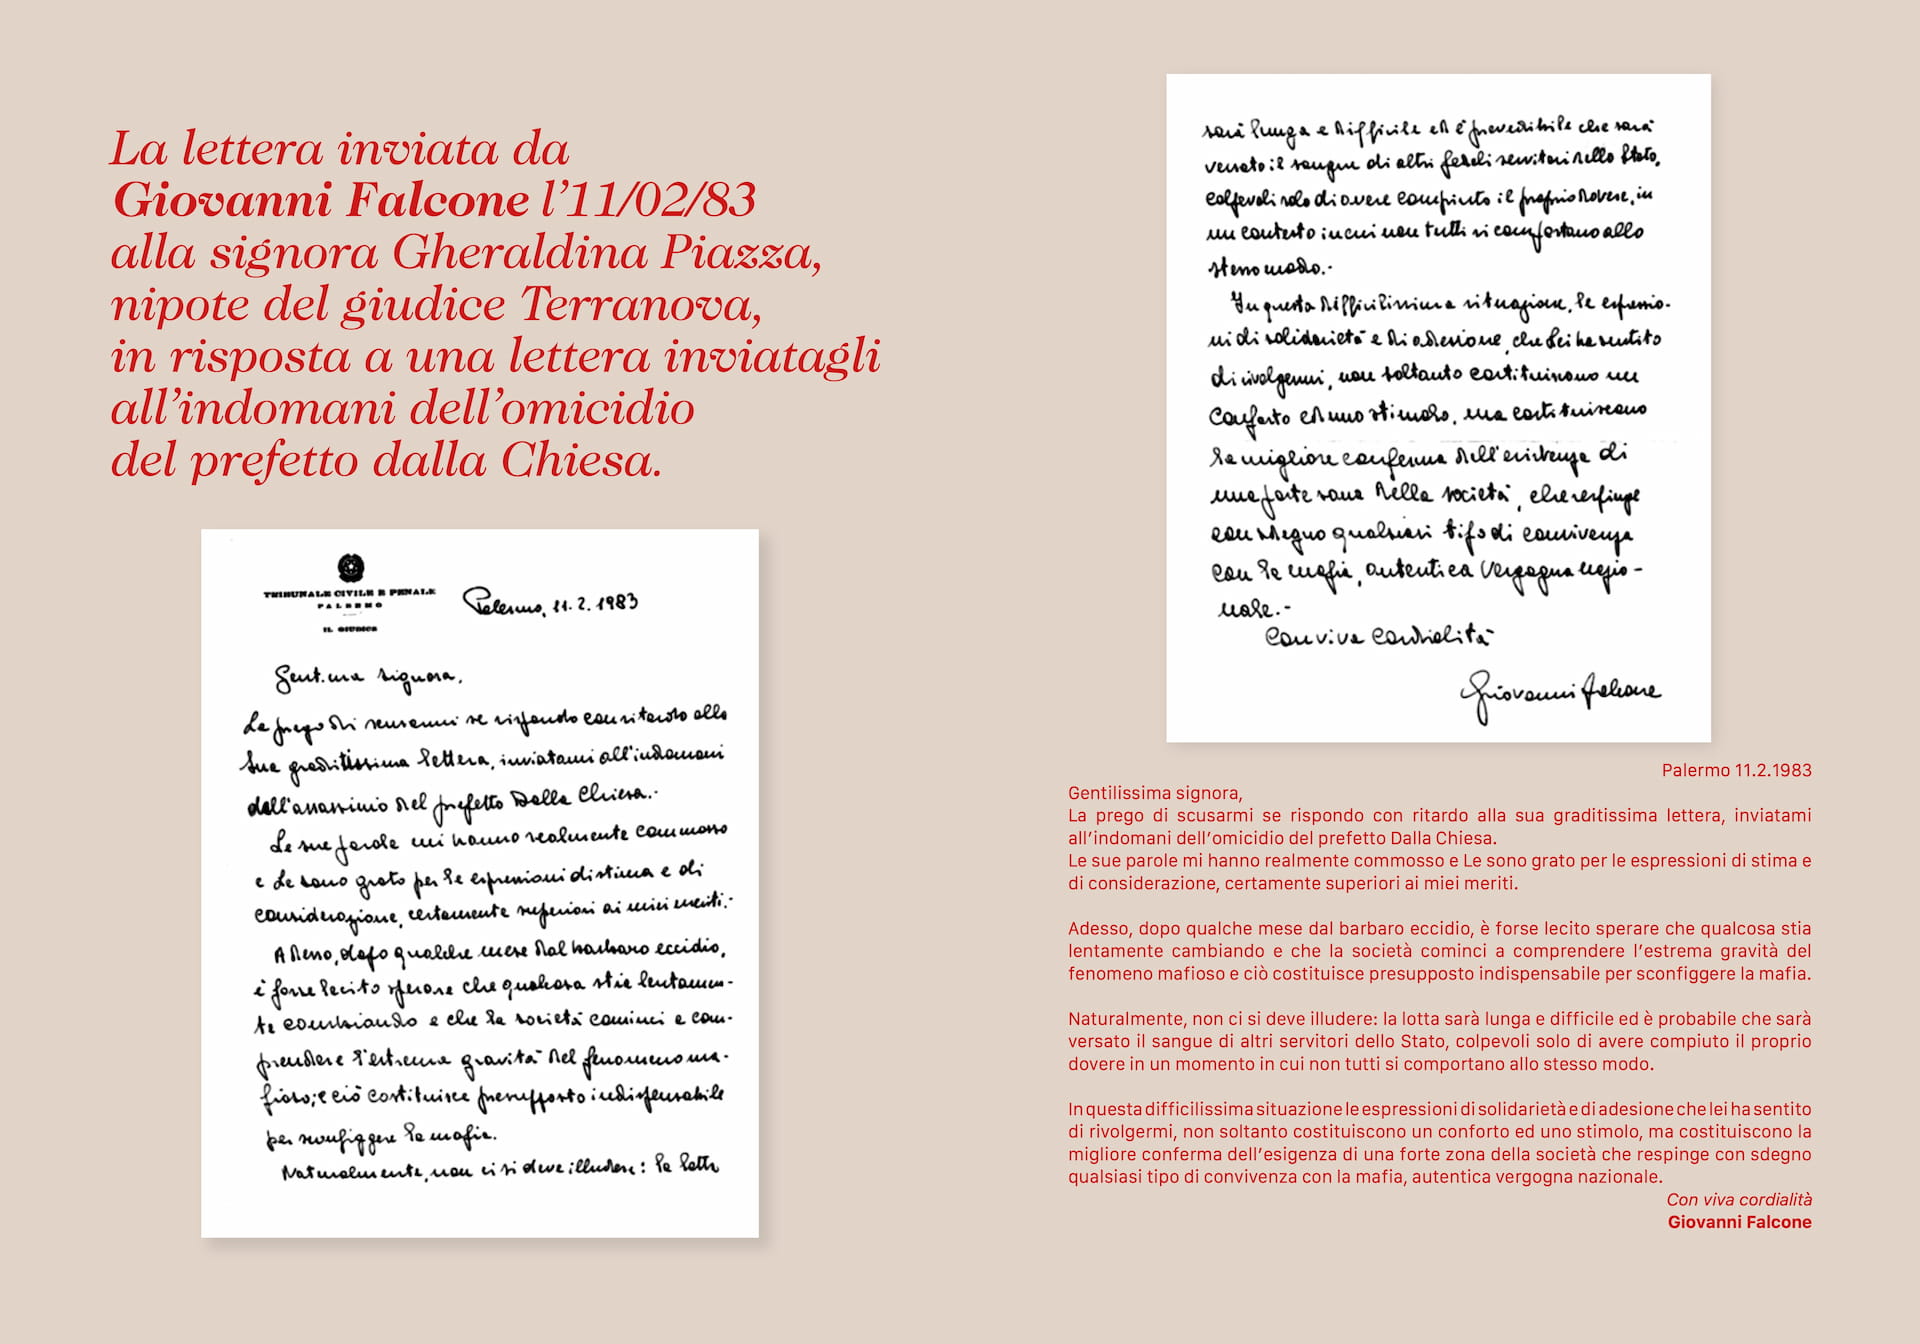 La lettera inviata da
Giovanni Falcone l’11/02/83
alla signora Gheraldina Piazza,
nipote del giudice Terranova,
in risposta a una lettera inviatagli
all’indomani dell’omicidio
del prefetto dalla Chiesa.
TRIBUNALE CIVILE E PENALE
PALERMO
IL GIUDICE
Palermo, 11.2.1983
Gent.ma signora,
La prego di scusarmi se rispondo con ritardo alla
Sua graditissima lettera, inviatami all'indomani
dell'assassinio del prefetto Dalla Chiesa.-
Le sue parole mi hanno realmente commosso
e Le sono grato per le espressioni di stima e di
considerazione, certamente superiori ai miei meriti.-
Adesso, dopo qualche mese dal barbaro eccidio,
è forse lecito sperare che qualcosa stia lentamen-
te cambiando e che la società cominci a com-
prendere l'estrema gravità del fenomeno ma-
fioso; e ciò costituisce presupposto indispensabile
per sconfiggere la mafia.
Naturalmente, non ci si deve illudere: la lotta
sarà lunga e difficile ed è prevedibile che sarà
versato il sangue di altri fedeli servitori dello Stato,
colpevoli solo di avere compiuto il proprio dovere, in
un contesto in cui non tutti si comportano allo
stesso modo.-
In questa difficilissima situazione, le espressio-
ni di solidarietà e di adesione, che Lei ha sentito
di rivolgermi, non soltanto costituiscono un
conforto ed uno stimolo, ma costituiscono
la migliore conferma dell'esistenza di
una parte sana della società, che respinge
con sdegno qualsiasi tipo di convivenza
con la mafia, autentica vergogna nazio-
nale.-
Con viva cordialità
Giovanni Falcone
Palermo 11.2.1983
Gentilissima signora,
La prego di scusarmi se rispondo con ritardo alla sua graditissima lettera, inviatami
all’indomani dell’omicidio del prefetto Dalla Chiesa.
Le sue parole mi hanno realmente commosso e Le sono grato per le espressioni di stima e
di considerazione, certamente superiori ai miei meriti.
Adesso, dopo qualche mese dal barbaro eccidio, è forse lecito sperare che qualcosa stia
lentamente cambiando e che la società cominci a comprendere l’estrema gravità del
fenomeno mafioso e ciò costituisce presupposto indispensabile per sconfiggere la mafia.
Naturalmente, non ci si deve illudere: la lotta sarà lunga e difficile ed è probabile che sarà
versato il sangue di altri servitori dello Stato, colpevoli solo di avere compiuto il proprio
dovere in un momento in cui non tutti si comportano allo stesso modo.
In questa difficilissima situazione le espressioni di solidarietà e di adesione che lei ha sentito
di rivolgermi, non soltanto costituiscono un conforto ed uno stimolo, ma costituiscono la
migliore conferma dell’esigenza di una forte zona della società che respinge con sdegno
qualsiasi tipo di convivenza con la mafia, autentica vergogna nazionale.
Con viva cordialità
Giovanni Falcone